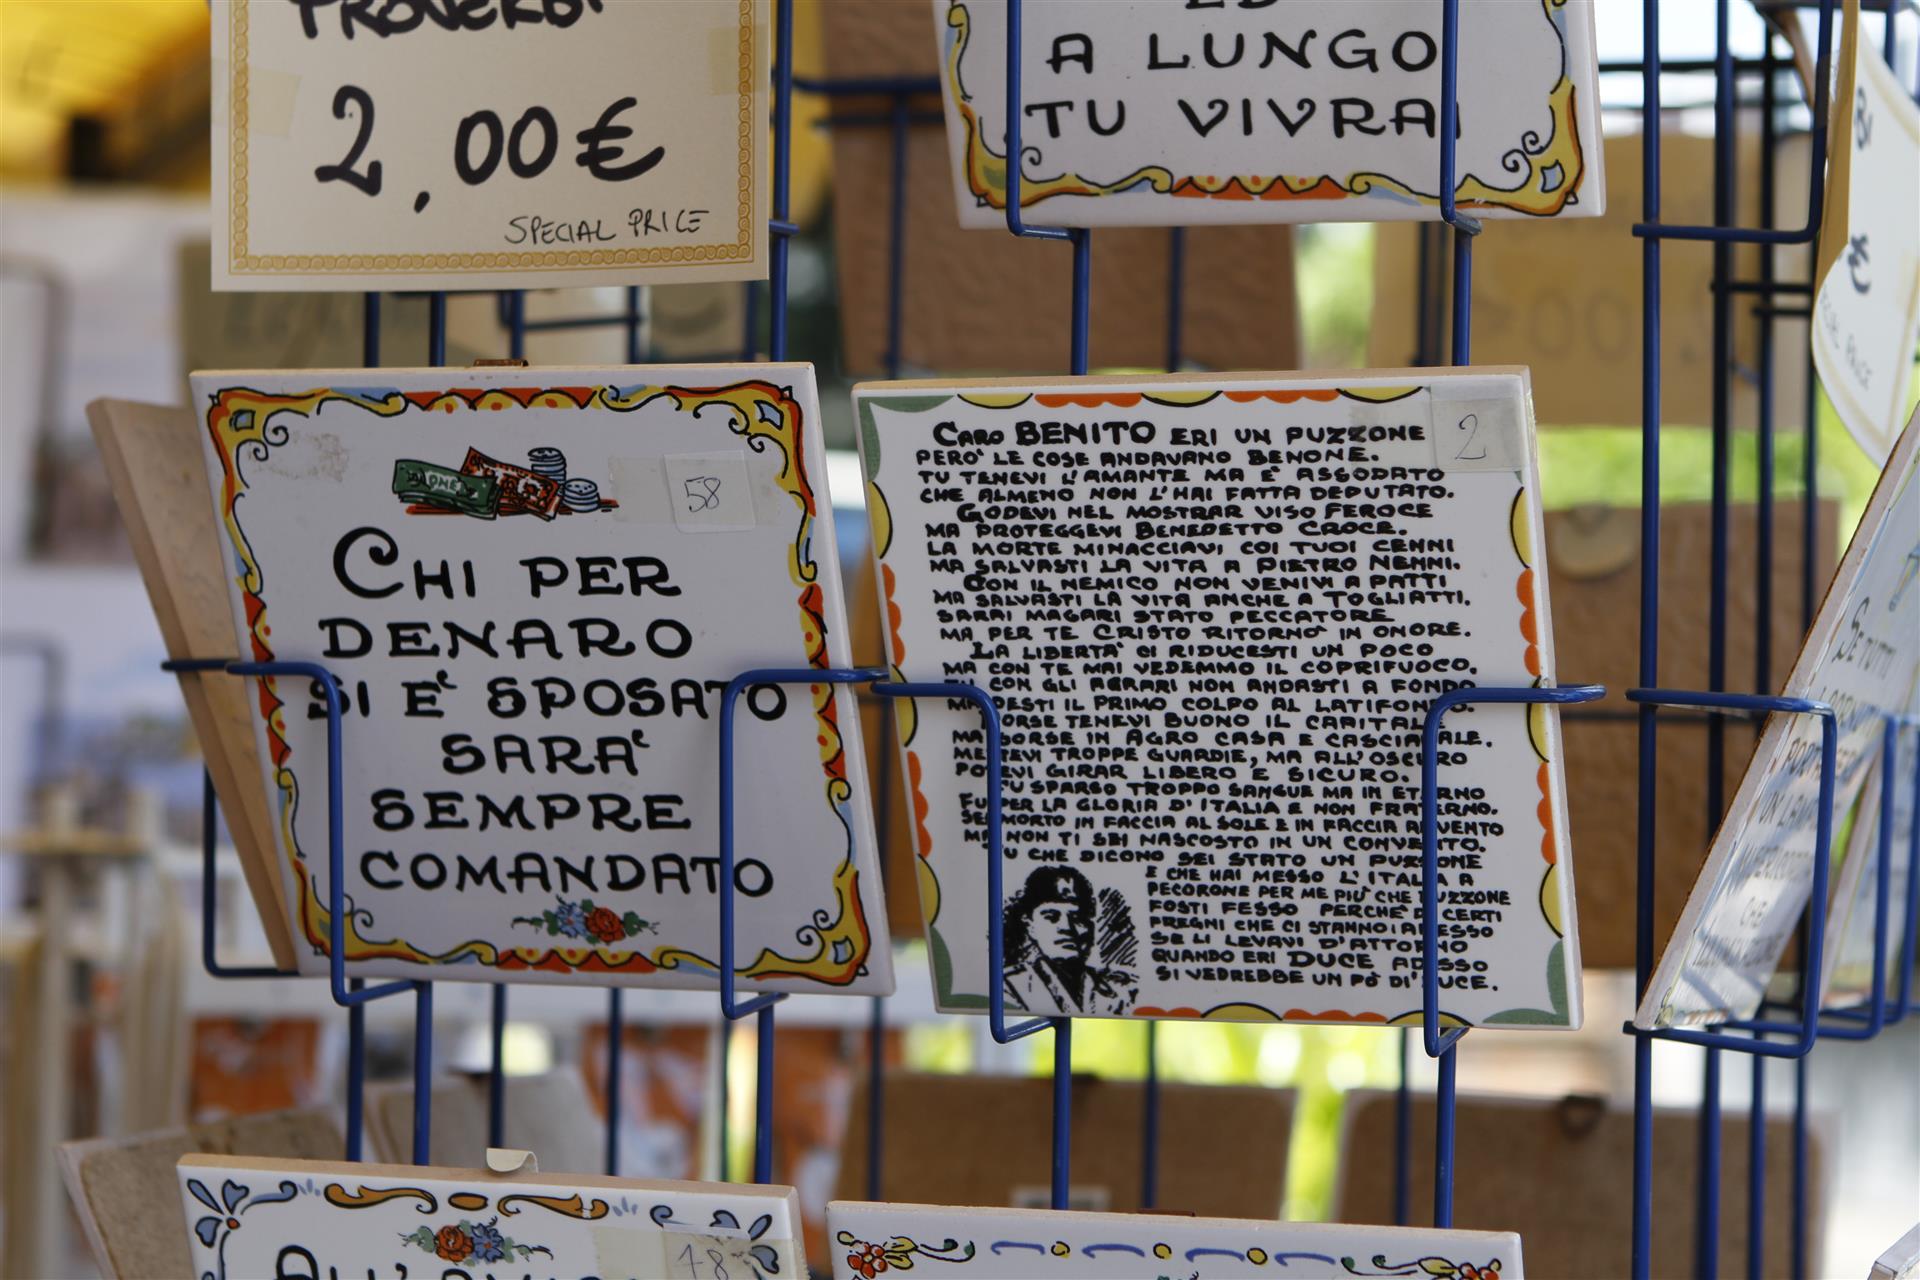 PROVERBI
2,00€
SPECIAL PRICE
ED
A LUNGO
TU VIVRAI
58
ONE
CHI PER
DENARO
SI E' SPOSATO
SARA'
SEMPRE
COMANDATO
2
CARO BENITO ERI UN PUZZONE
PERO' LE COSE ANDAVANO BENONE.
TU TENEVI L'AMANTE MA E' ASSODATO
CHE ALMENO NON L'HAI FATTA DEPUTATO.
GODEVI NEL MOSTRAR VISO FEROCE
MA PROTEGGEVI BENEDETTO CROCE.
LA MORTE MINACCIAVI COI TUOI CENNI
MA SALVASTI LA VITA A PIETRO NENNI.
CON IL NEMICO NON VENIVI A PATTI
MA SALVASTI LA VITA ANCHE A TOGLIATTI.
SARAI MAGARI STATO PECCATORE
MA PER TE CRISTO RITORNO' IN ONORE.
LA LIBERTA' CI RIDUCESTI UN POCO
MA CON TE MAI VEDEMMO IL COPRIFUOCO.
TU CON GLI AGRARI NON ANDASTI A FONDO
MA DESTI IL PRIMO COLPO AL LATIFONDO.
FORSE TENEVI BUONO IL CAPITALE
MA SORSE IN AGRO CASA E CASCINALE.
METTEVI TROPPE GUARDIE, MA ALL'OSCURO
POTEVI GIRAR LIBERO E SICURO.
FU SPARSO TROPPO SANGUE MA IN ETERNO
FU PER LA GLORIA D'ITALIA E NON FRATERNO.
SEI MORTO IN FACCIA AL SOLE E IN FACCIA AL VENTO
MA NON TI SEI NASCOSTO IN UN CONVENTO.
TU CHE DICONO SEI STATO UN PUZZONE
E CHE HAI MESSO L'ITALIA A
PECORONE PER ME PIU' CHE PUZZONE
FOSTI FESSO PERCHE' A CERTI
PREGNI CHE CI STANNO ADESSO
SE LI LEVAVI D'ATTORNO
QUANDO ERI DUCE ADESSO
SI VEDREBBE UN PO' DI LUCE.
BI
€
PRICE
SE TUTTI
UN
CHE
48
ALL'